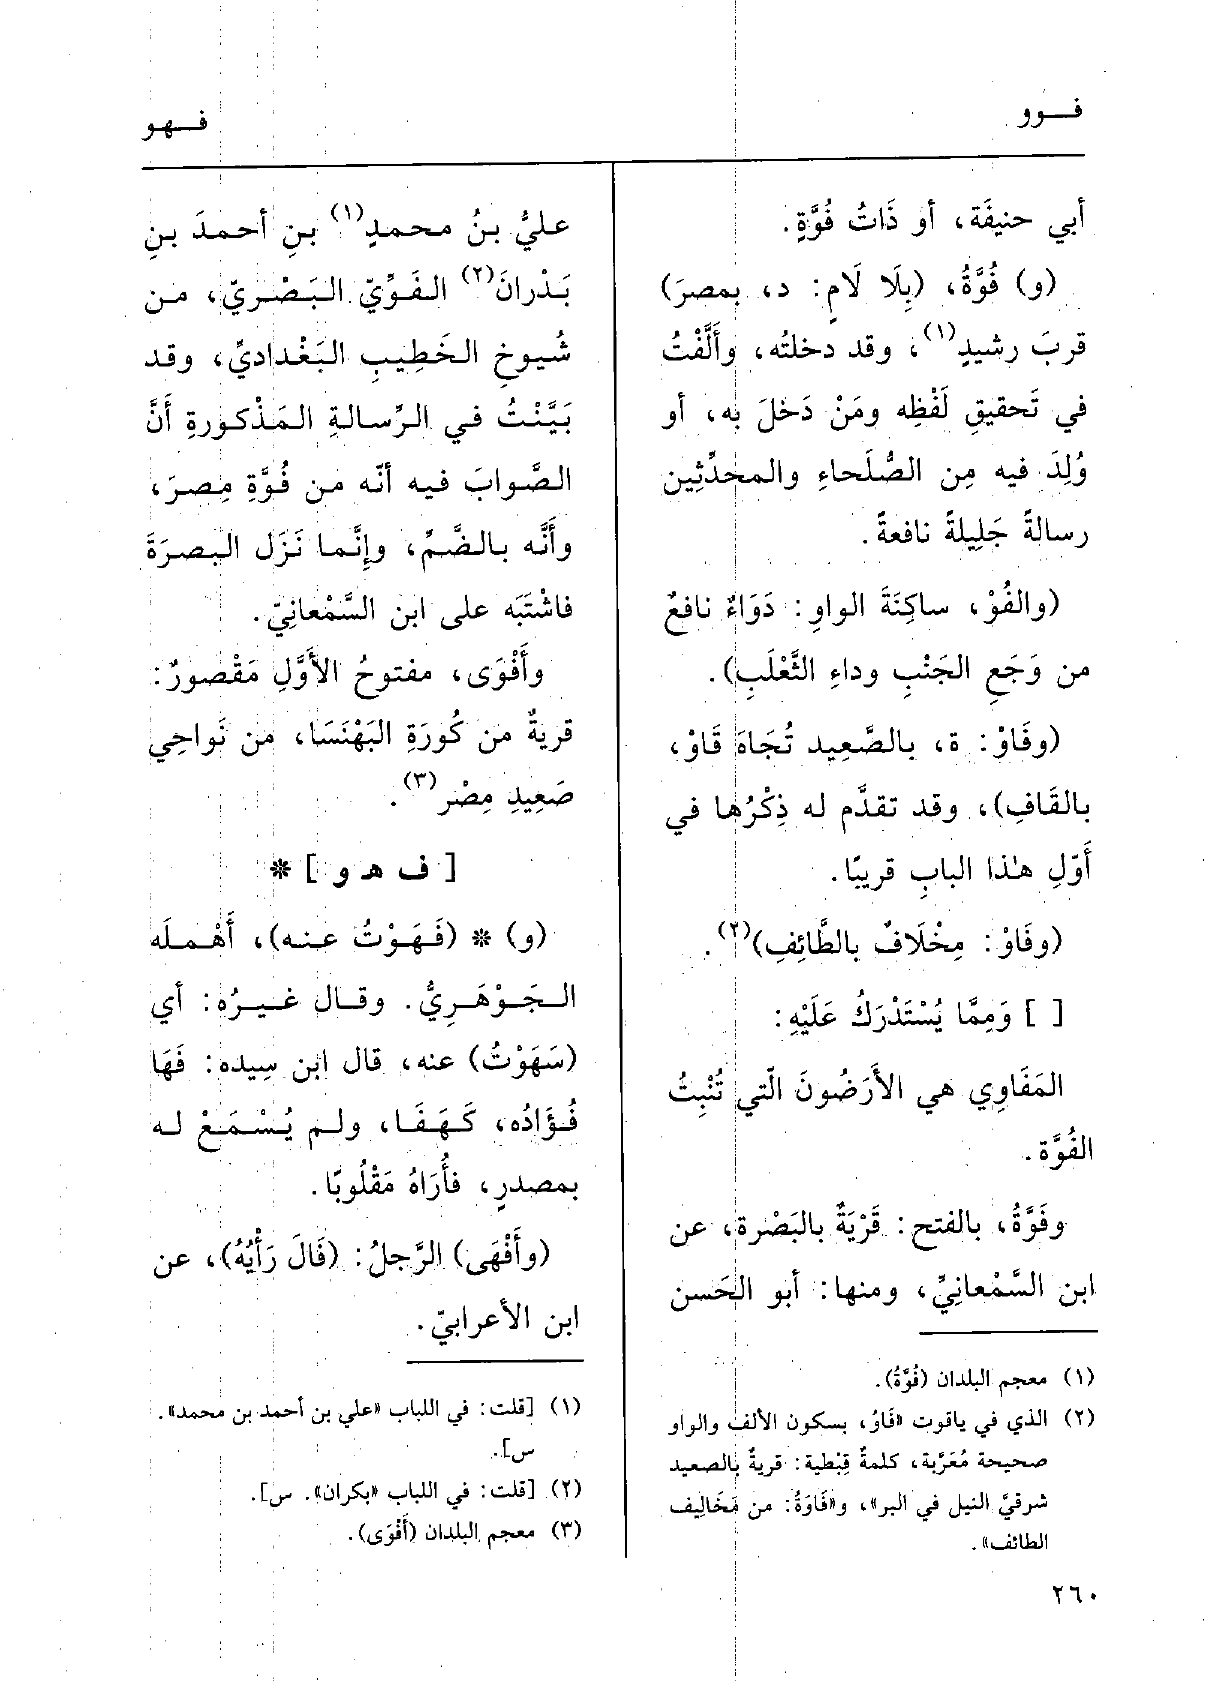 فوو
فهو
أبي حنيفَة، أو ذَاتُ فُوَّةٍ.
(و) فُوَّةُ، (بِلَا لَامٍ: د، بمصرَ)
قربَ رشيدٍ(١)، وقد دخلتُه، وأَلَّفْتُ
في تَحقيقِ لَفْظِه ومَنْ دَخلَ به، أو
وُلِدَ فيه مِن الصُّلَحاءِ والمحدِّثِين
رسالةً جَلِيلةً نافعةً.
(والفُوْ، ساكِنَةَ الواوِ: دَوَاءٌ نافعٌ
من وَجَعِ الجَنْبِ وداءِ الثَّعْلَبِ).
(وفَاوْ: ة، بالصَّعِيد تُجَاهَ قَاوْ،
بالقَافِ)، وقد تقدَّم له ذِكْرُها في
أَوّلِ هٰذا البابِ قريبًا.
(وفَاوْ: مِخْلَافٌ بالطَّائِفِ)(٢).
[ ] وَمِمَّا يُسْتَدْرَكُ عَلَيْهِ:
المَفَاوِي هي الأَرَضُونَ الّتي تُنْبِتُ
الفُوَّة.
وفَوَّةُ، بالفتح: قَرْيَةٌ بالبَصْرة، عن
ابن السَّمْعانِيِّ، ومنها: أبو الحَسن
(١) معجم البلدان (فُوَّةُ).
(٢) الذي في ياقوت «فَاوُ، بسكون الألف والواو
صحيحة مُعَرَّبة، كلمةٌ قِبْطية: قريةٌ بالصعيد
شرقيَّ النيل في البر»، و«فَاوَةُ: من مَخَالِيف
الطائف».
عليُّ بنُ محمدٍ(١) بنِ أحمدَ بنِ
بَدْرانَ(٢) الفَوِّيّ البَصْريّ، من
شُيوخِ الخَطِيبِ البَغْداديِّ، وقد
بَيَّنْتُ في الرِّسالةِ المَذْكورةِ أَنَّ
الصَّوابَ فيه أنّه من فُوَّةِ مِصرَ،
وأَنَّه بالضَّمِّ، وإِنَّما نَزَل البصرَةَ
فاشْتَبَه على ابن السَّمْعانِيّ.
وأَفْوَى، مفتوحُ الأَوَّلِ مَقْصورٌ:
قريةٌ من كُورَةِ البَهْنَسَا، من نَواحِي
صَعِيدِ مِصْر(٣).
[ ف هـ و ] *
(و) * (فَهَوْتُ عنه)، أَهْمله
الجَوْهَرِيُّ. وقال غيرُه: أي
(سَهَوْتُ) عنه، قال ابن سِيده: فَهَا
فُؤَادُه، كَهَفَا، ولم يُسْمَعْ له
بمصدرٍ، فأُرَاهُ مَقْلُوبًا.
(وأَفْهَى) الرَّجلُ: (فَالَ رَأْيُهُ)، عن
ابن الأعرابيّ.
(١) [قلت: في اللباب «علي بن أحمد بن محمد».
س].
(٢) [قلت: في اللباب «بكران». س].
(٣) معجم البلدان (أَفْوَى).
٢٦٠